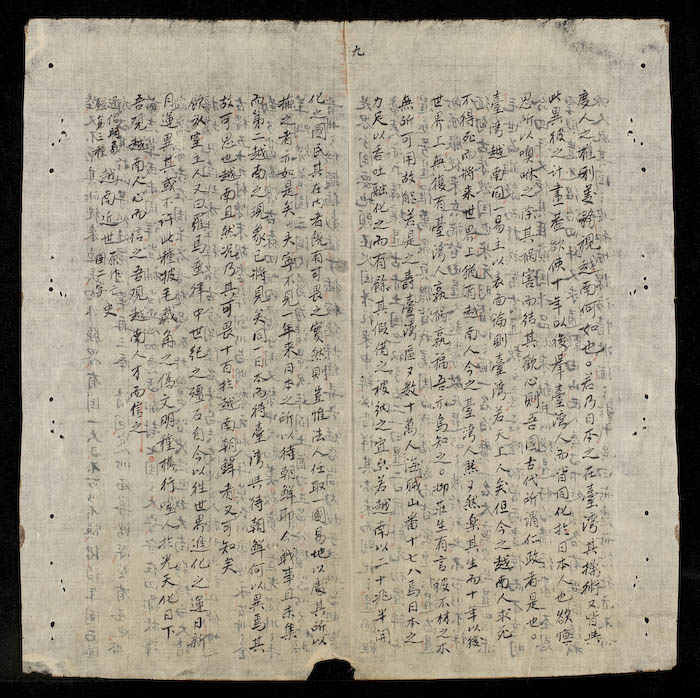 九
度人之權利義務視越南何如也。若乃日本之在臺灣其操術又時與
此異彼之計畫蓋欲使十年以後舉臺灣人而皆同化於日本人也欲
思所以噢咻之除其禍害而結其歡心則吾國古代所謂仁政者是也。
臺灣越南同一易主以表面論則臺灣若天上人矣但今之越南人求死
不得死而將來世界上猶有越南人今之臺灣人熙熙樂其生而十年以後
世界上無復有臺灣人孰禍孰福吾亦烏知之。抑莊生有言彼不材之木
無所可用故能若是之壽臺灣區區數十萬人海賊山番十七八焉日本之
力足以吞吐融化之而有餘其假借之彼納之宜也若越南以二十兆半開
化之國民其在內者既有可畏之實然則豈惟法人任取一國易地以處其所以
撫之者亦如是矣。夫寧不見一年來日本之所以待朝鮮耶今戰事且未集
而第二越南之現象已將見矣同一日本而待臺灣與待朝鮮何以異焉其
故可思也越南且然況乃其可畏十百於越南朝鮮者又可知矣
飲冰室主人又曰羅馬垂律中世紀之殭石自今以往世界進化之運日新
月異其或不許此種披毛戴角之偽文明種橫行噬人於光天化日下
吾驗越南人心而信之吾觀越南人才而信之
越南近世史